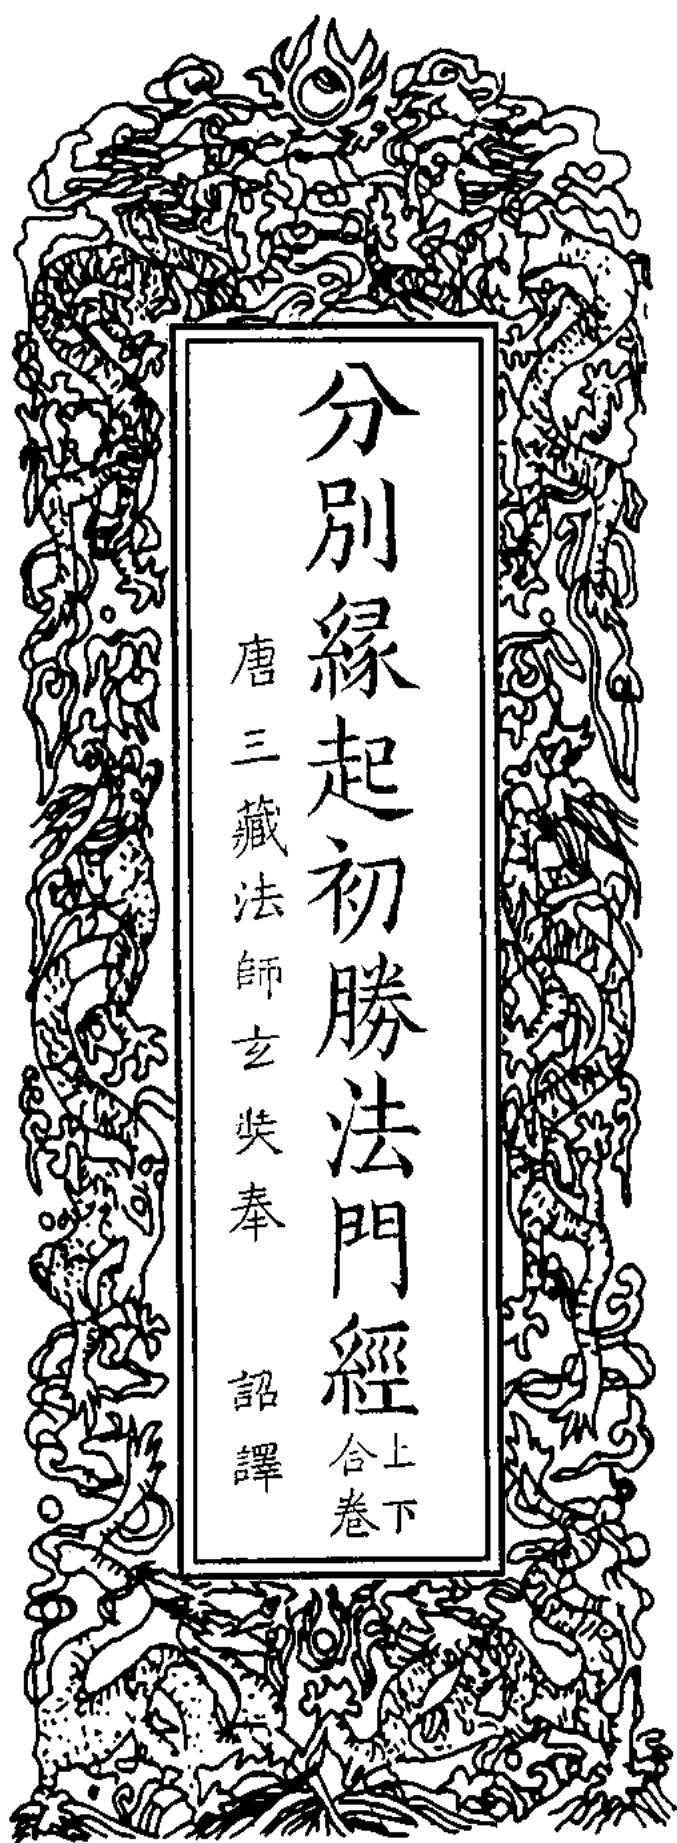 分別緣起初勝法門經
上下
合卷
唐三藏法師玄奘奉 詔譯